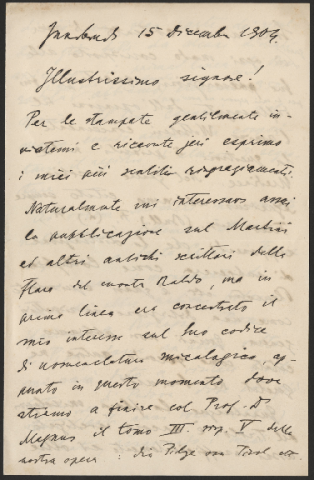 Innsbruck 15 Dicembre 1904.
Illustrissimo signore!
Per le stampate gentilmente in-
viatemi e ricevute jeri esprimo
i miei più sentiti ringraziamenti.
Naturalmente mi interessava assai
la pubblicazione sul Martini
et altri antichi scrittori della
Flora del monte Baldo, ma in
prima linea era concentrato il
mio interesse sul Suo codice
di nomenclatura micologica, ap-
punto in questo momento dove
stiamo a finire col Prof. D
Magnus il tomo III. resp. V della
nostra opera: die Pilze von Tirol